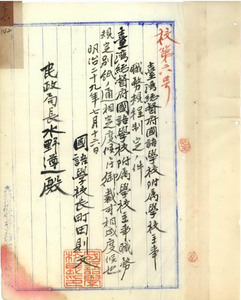 校第六号
臺灣總督府國語學校附屬學校主事
職務規程制定ノ件
臺灣總督府國語學校附屬學校主事職務
規定別紙ノ通相定度候ニ付御裁可相成度候也
明治二十九年七月十三日
國語學校長町田則文
民政局長水野遵殿